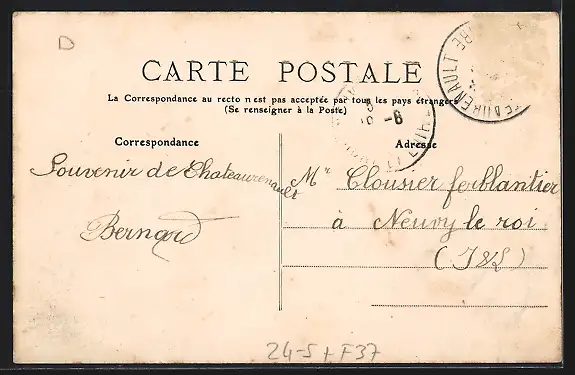 D
CARTE POSTALE
La Correspondance au recto n'est pas acceptée par tous les pays étrangers
(Se renseigner à la Poste)
Correspondance
Adresse
Souvenir de Chateaurenault
Bernard
Mr Clousier ferblantier
à Neuvy le roi
(I&L)
24-5 + F37